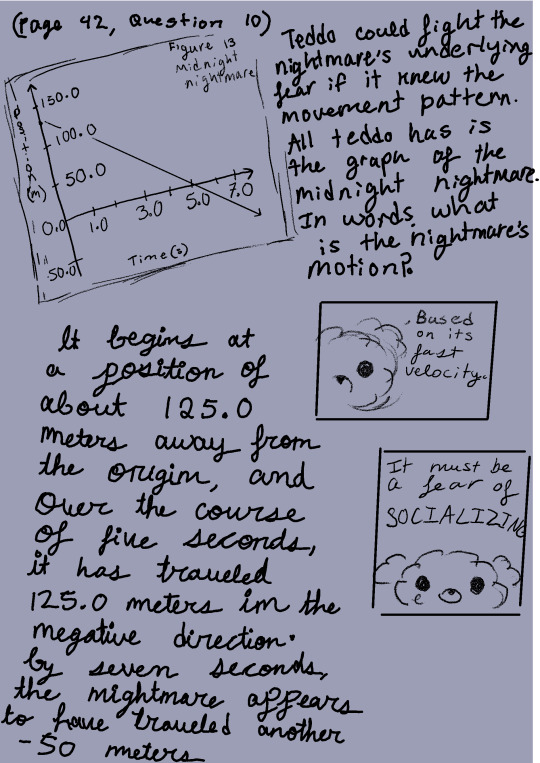 (Page 42, Question 10)
Figure 13
midnight
nightmare
Position (m)
150.0
100.0
50.0
0.0
50.0
1.0
3.0
5.0
7.0
Time(s)
Teddo could fight the
nightmare's underlying
fear if it knew the
movement pattern.
All teddo has is
the graph of the
midnight nightmare.
In words, what
is the nightmare's
motion?
It begins at
a position of
about 125.0
meters away from
the origin, and
over the course
of five seconds,
it has traveled
125.0 meters in the
negative direction.
by seven seconds,
the nightmare appears
to have traveled another
-50 meters
Based
on its
fast
velocity.
It must be
a fear of
SOCIALIZING